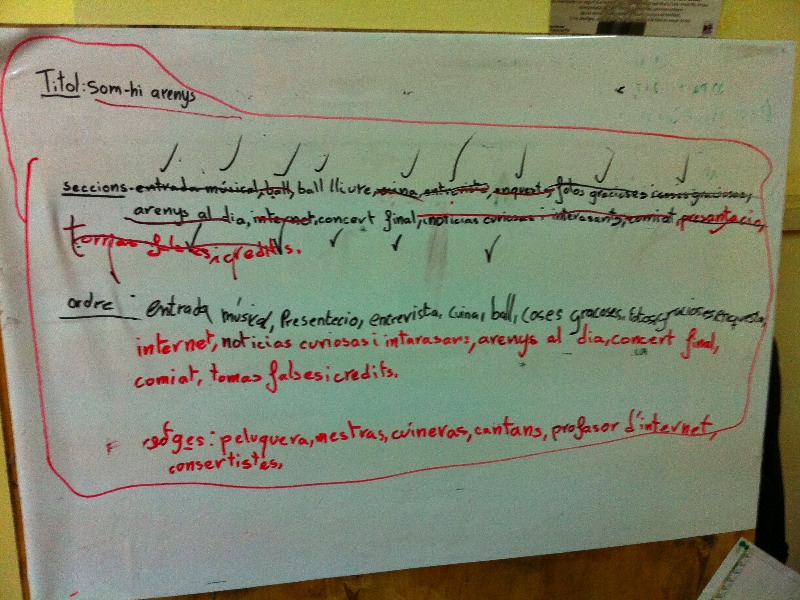 Titol: Som-hi arenys
seccions. entrada músical, ball, ball lliure, cuina, entrevista, enquesta, fotos gracioses, coses gracioses,
arenys al dia, internet, concert final, noticias curiosas i interasants, comiat, presentacio,
tomas falses, i credits.
ordre: entrada músical, Presentecio, entrevista, Cuina, ball, Coses gracoses, fotos gracioses, enquesta,
internet, noticias curiosas i intarasars, arenys al dia, concert final,
comiat, tomas falses i credits.
: peluquera, mestras, cuineras, cantans, profasor d'internet,
consertistes,